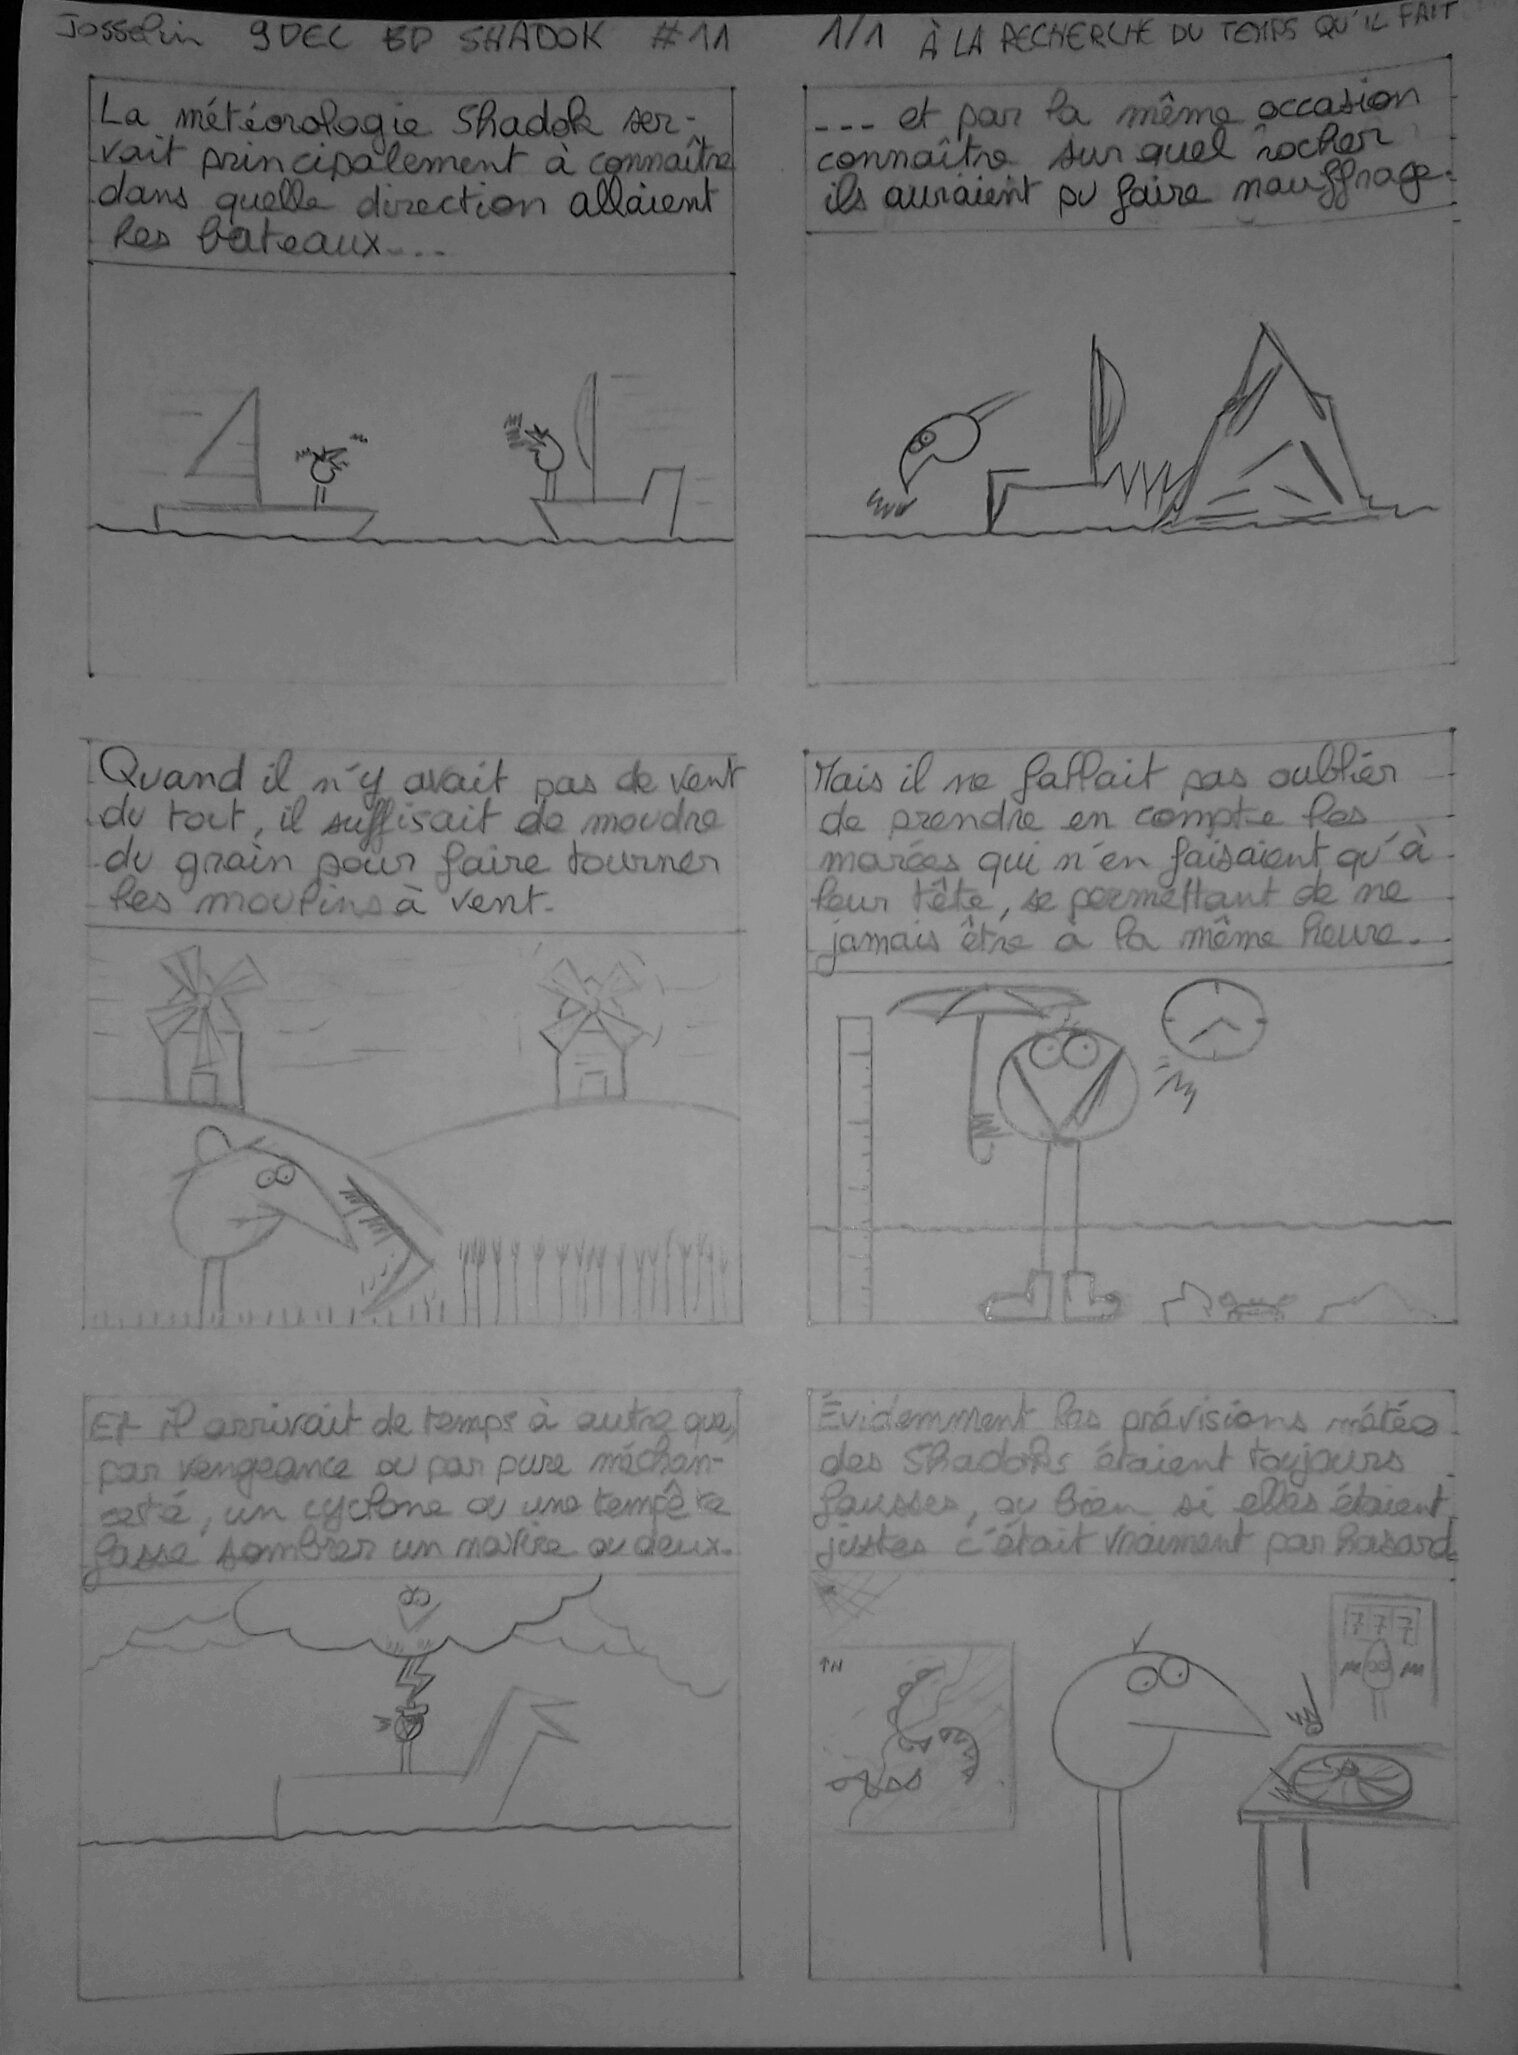 Josselin 9 DEC BD SHADOK #11 1/1 À LA RECHERCHE DU TEMPS QU'IL FAIT
La météorologie Shadok ser-
vait principalement à connaître
dans quelle direction allaient
les bateaux...
... et par la même occasion
connaître sur quel rocher
ils auraient pu faire nauffrage.
Quand il n'y avait pas de vent
du tout, il suffisait de moudre
du grain pour faire tourner
les moulins à vent.
Mais il ne fallait pas oublier
de prendre en compte les
marées qui n'en faisaient qu'à
leur tête, se permettant de ne
jamais être à la même heure.
Et il arrivait de temps à autre que,
par vengeance ou par pure méchan-
ceté, un cyclone ou une tempête
fasse sombrer un navire ou deux.
Évidemment les prévisions météo
des Shadoks étaient toujours
fausses, ou bien si elles étaient
justes c'était vraiment par hasard
↑N
7 7 7